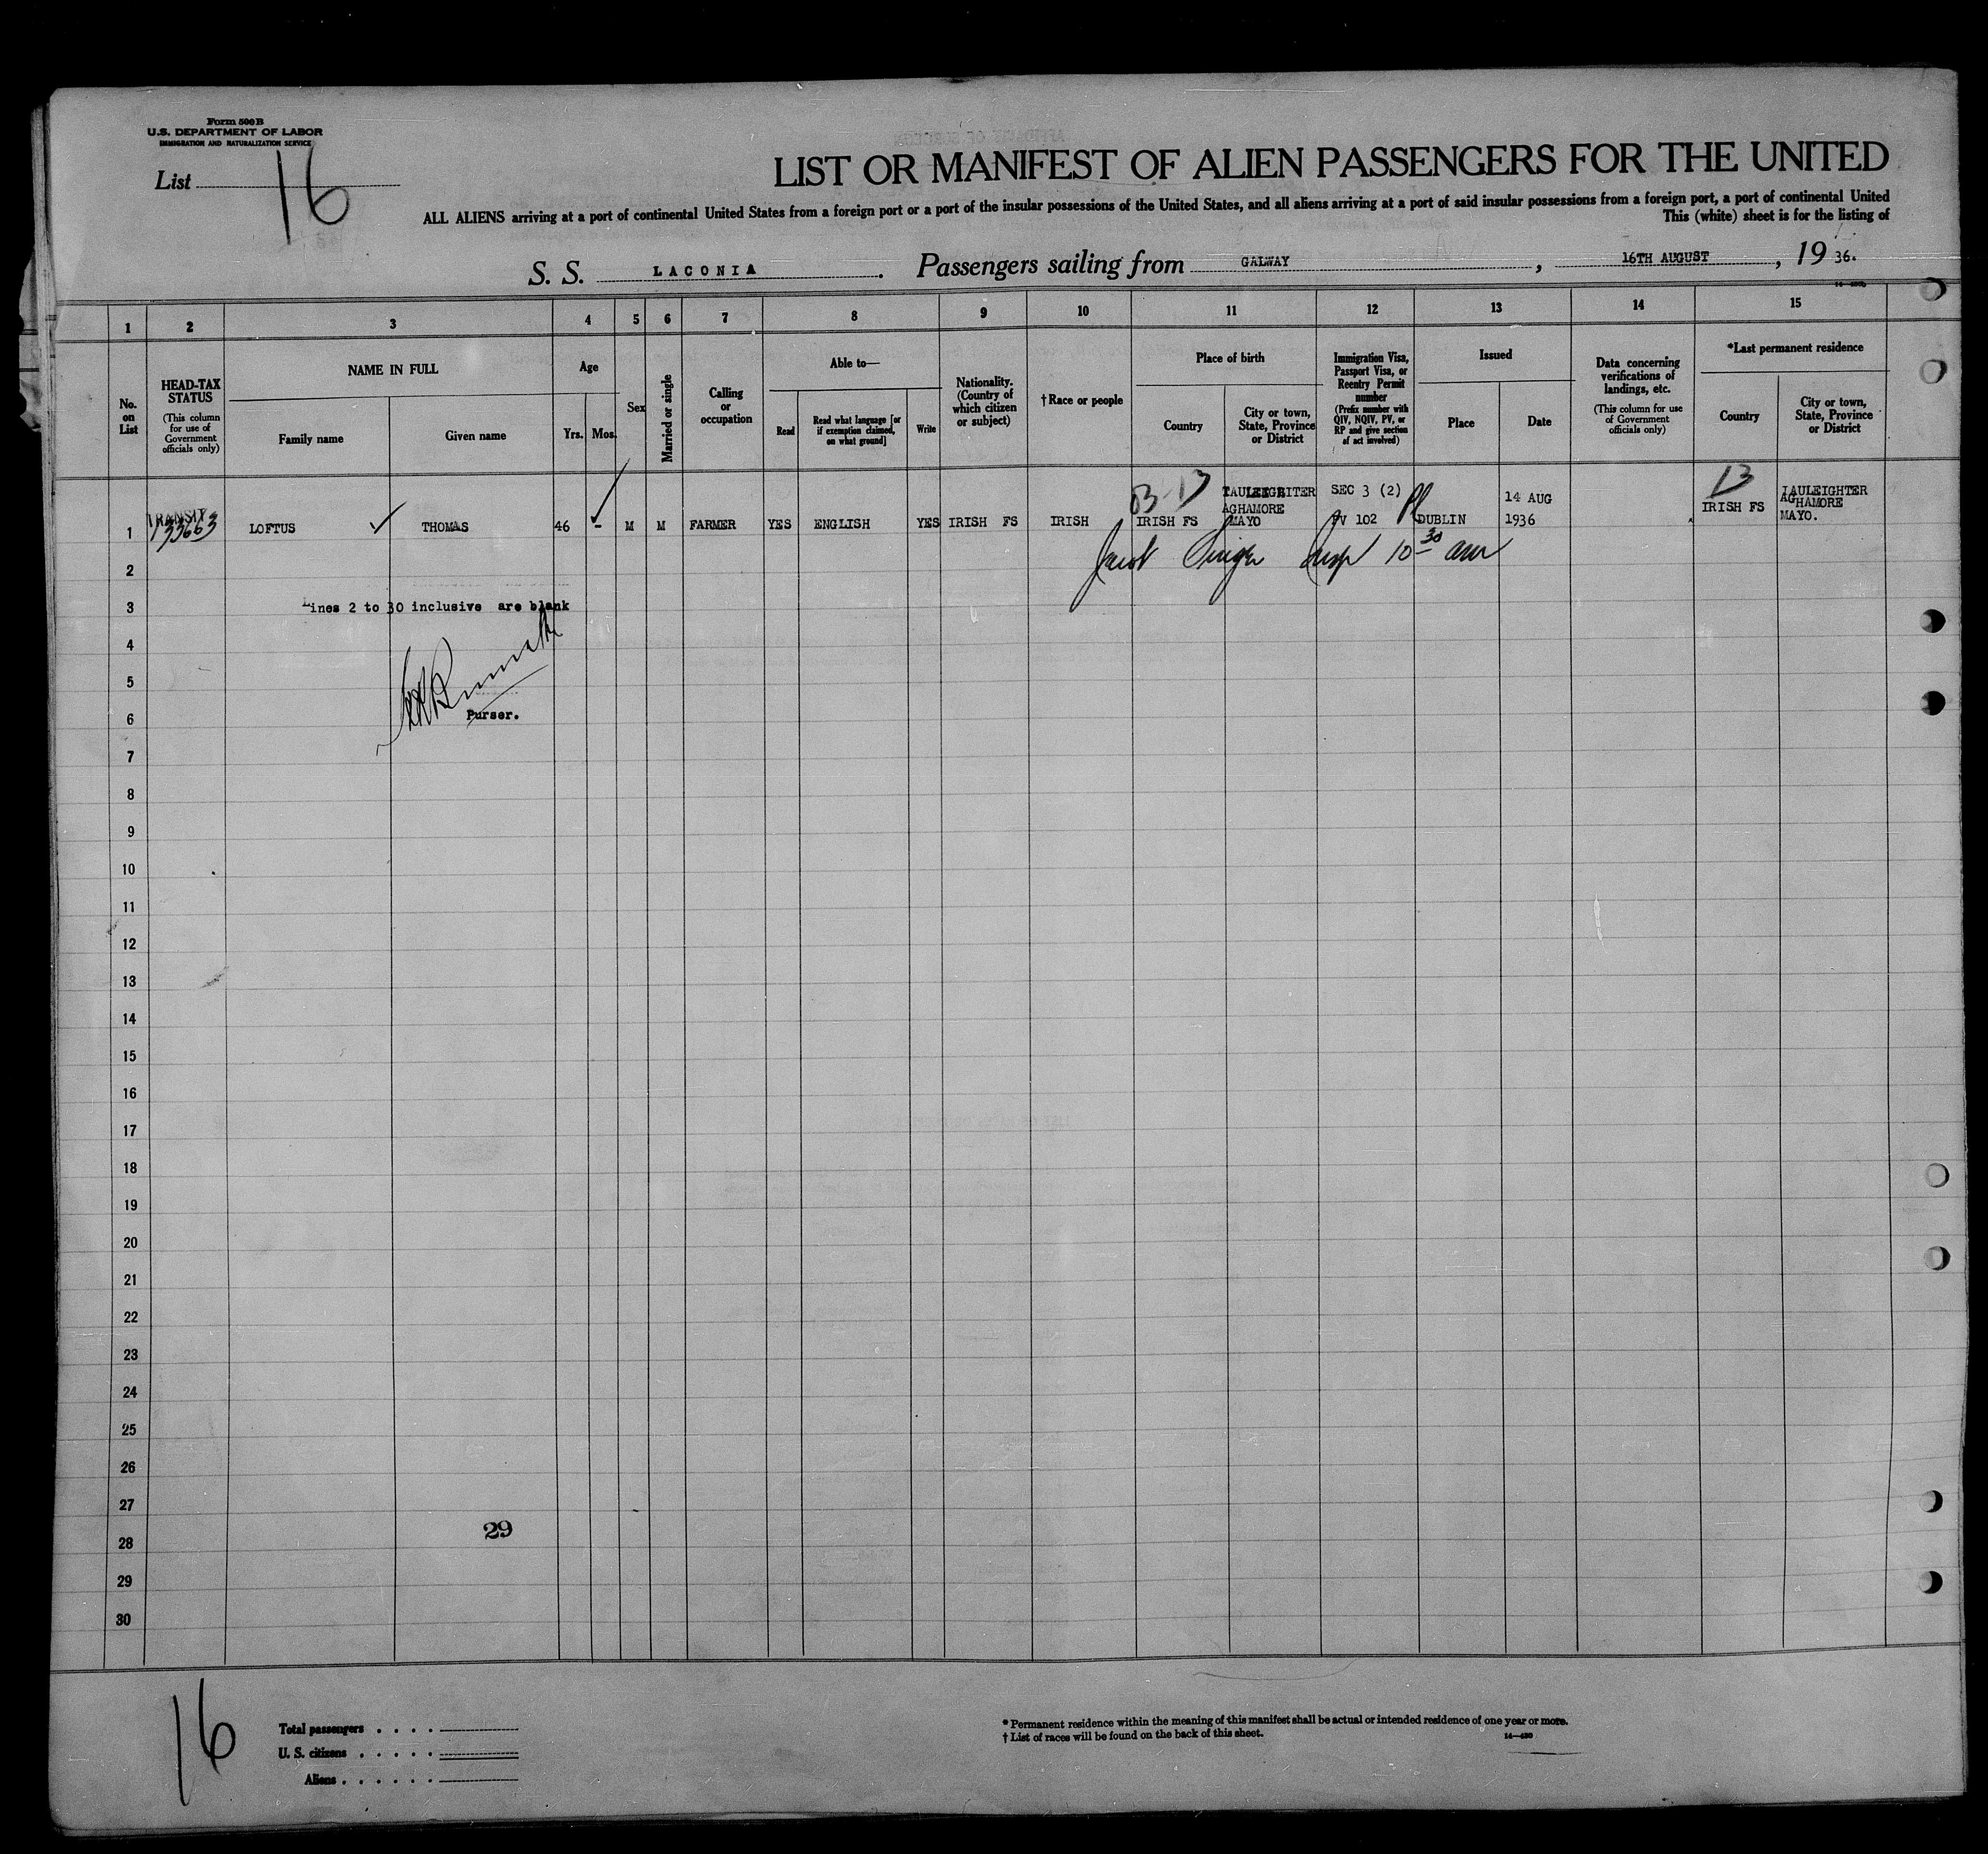 Form 500 B
U.S. DEPARTMENT OF LABOR
IMMIGRATION AND NATURALIZATION SERVICE
List 16
LIST OR MANIFEST OF ALIEN PASSENGERS FOR THE UNITED
ALL ALIENS arriving at a port of continental United States from a foreign port or a port of the insular possessions of the United States, and all aliens arriving at a port of said insular possessions from a foreign port, a port of continental United
This (white) sheet is for the listing of
S. S. LACONIA. Passengers sailing from GALWAY, 16TH AUGUST, 1936.
1 2 3 4 5 6 7 8 9 10 11 12 13 14 15
No. on List
HEAD-TAX STATUS
(This column for use of Government officials only)
NAME IN FULL
Family name
Given name
Age
Yrs.
Mos.
Sex
Married or single
Calling or occupation
Able to—
Read
Read what language [or if exemption claimed, on what ground]
Write
Nationality. (Country of which citizen or subject)
† Race or people
Place of birth
Country
City or town, State, Province or District
Immigration Visa, Passport Visa, or Reentry Permit number
(Prefix number with QIV, NQIV, PV, or RP and give section of act involved)
Issued
Place
Date
Data concerning verifications of landings, etc.
(This column for use of Government officials only)
*Last permanent residence
Country
City or town, State, Province or District
1 TRANSIT 133663 LOFTUS THOMAS 46 - M M FARMER YES ENGLISH YES IRISH FS IRISH IRISH FS AGHAMORE MAYO SEC 3 (2) PV 102 DUBLIN 14 AUG 1936 13 IRISH FS AGHAMORE MAYO.
10 30 am
2
3 Lines 2 to 30 inclusive are blank
4
5
6 Purser.
7
8
9
10
11
12
13
14
15
16
17
18
19
20
21
22
23
24
25
26
27
29
28
29
30
16
Total passengers . . . .
U. S. citizens . . . . .
Aliens . . . . . .
* Permanent residence within the meaning of this manifest shall be actual or intended residence of one year or more.
† List of races will be found on the back of this sheet.